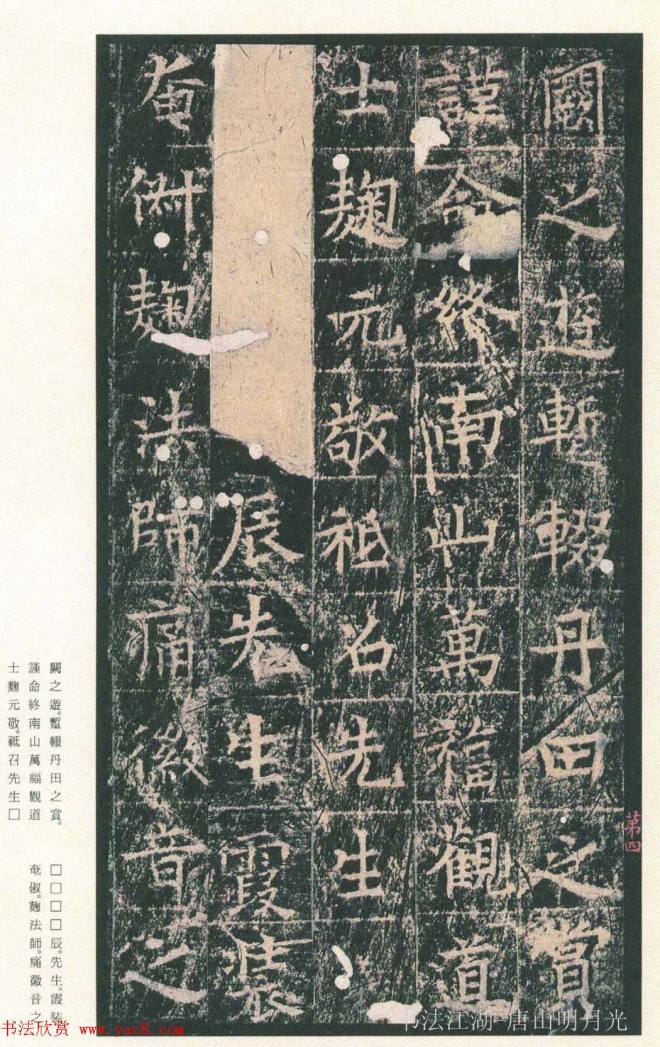 闕之遊蹔輟丹田之賞
謹命終南山萬福觀道
士麹元敬祗召先生
辰先生霞裝
奄俶麹法師痛徽音之
第四
闕之遊。蹔輟丹田之賞。
謹命終南山萬福觀道
士麹元敬。祗召先生□
□□□□辰。先生。霞裝
奄俶。麹法師。痛徽音之
书法欣赏 www.yac8.com
书法江湖-唐山明月光